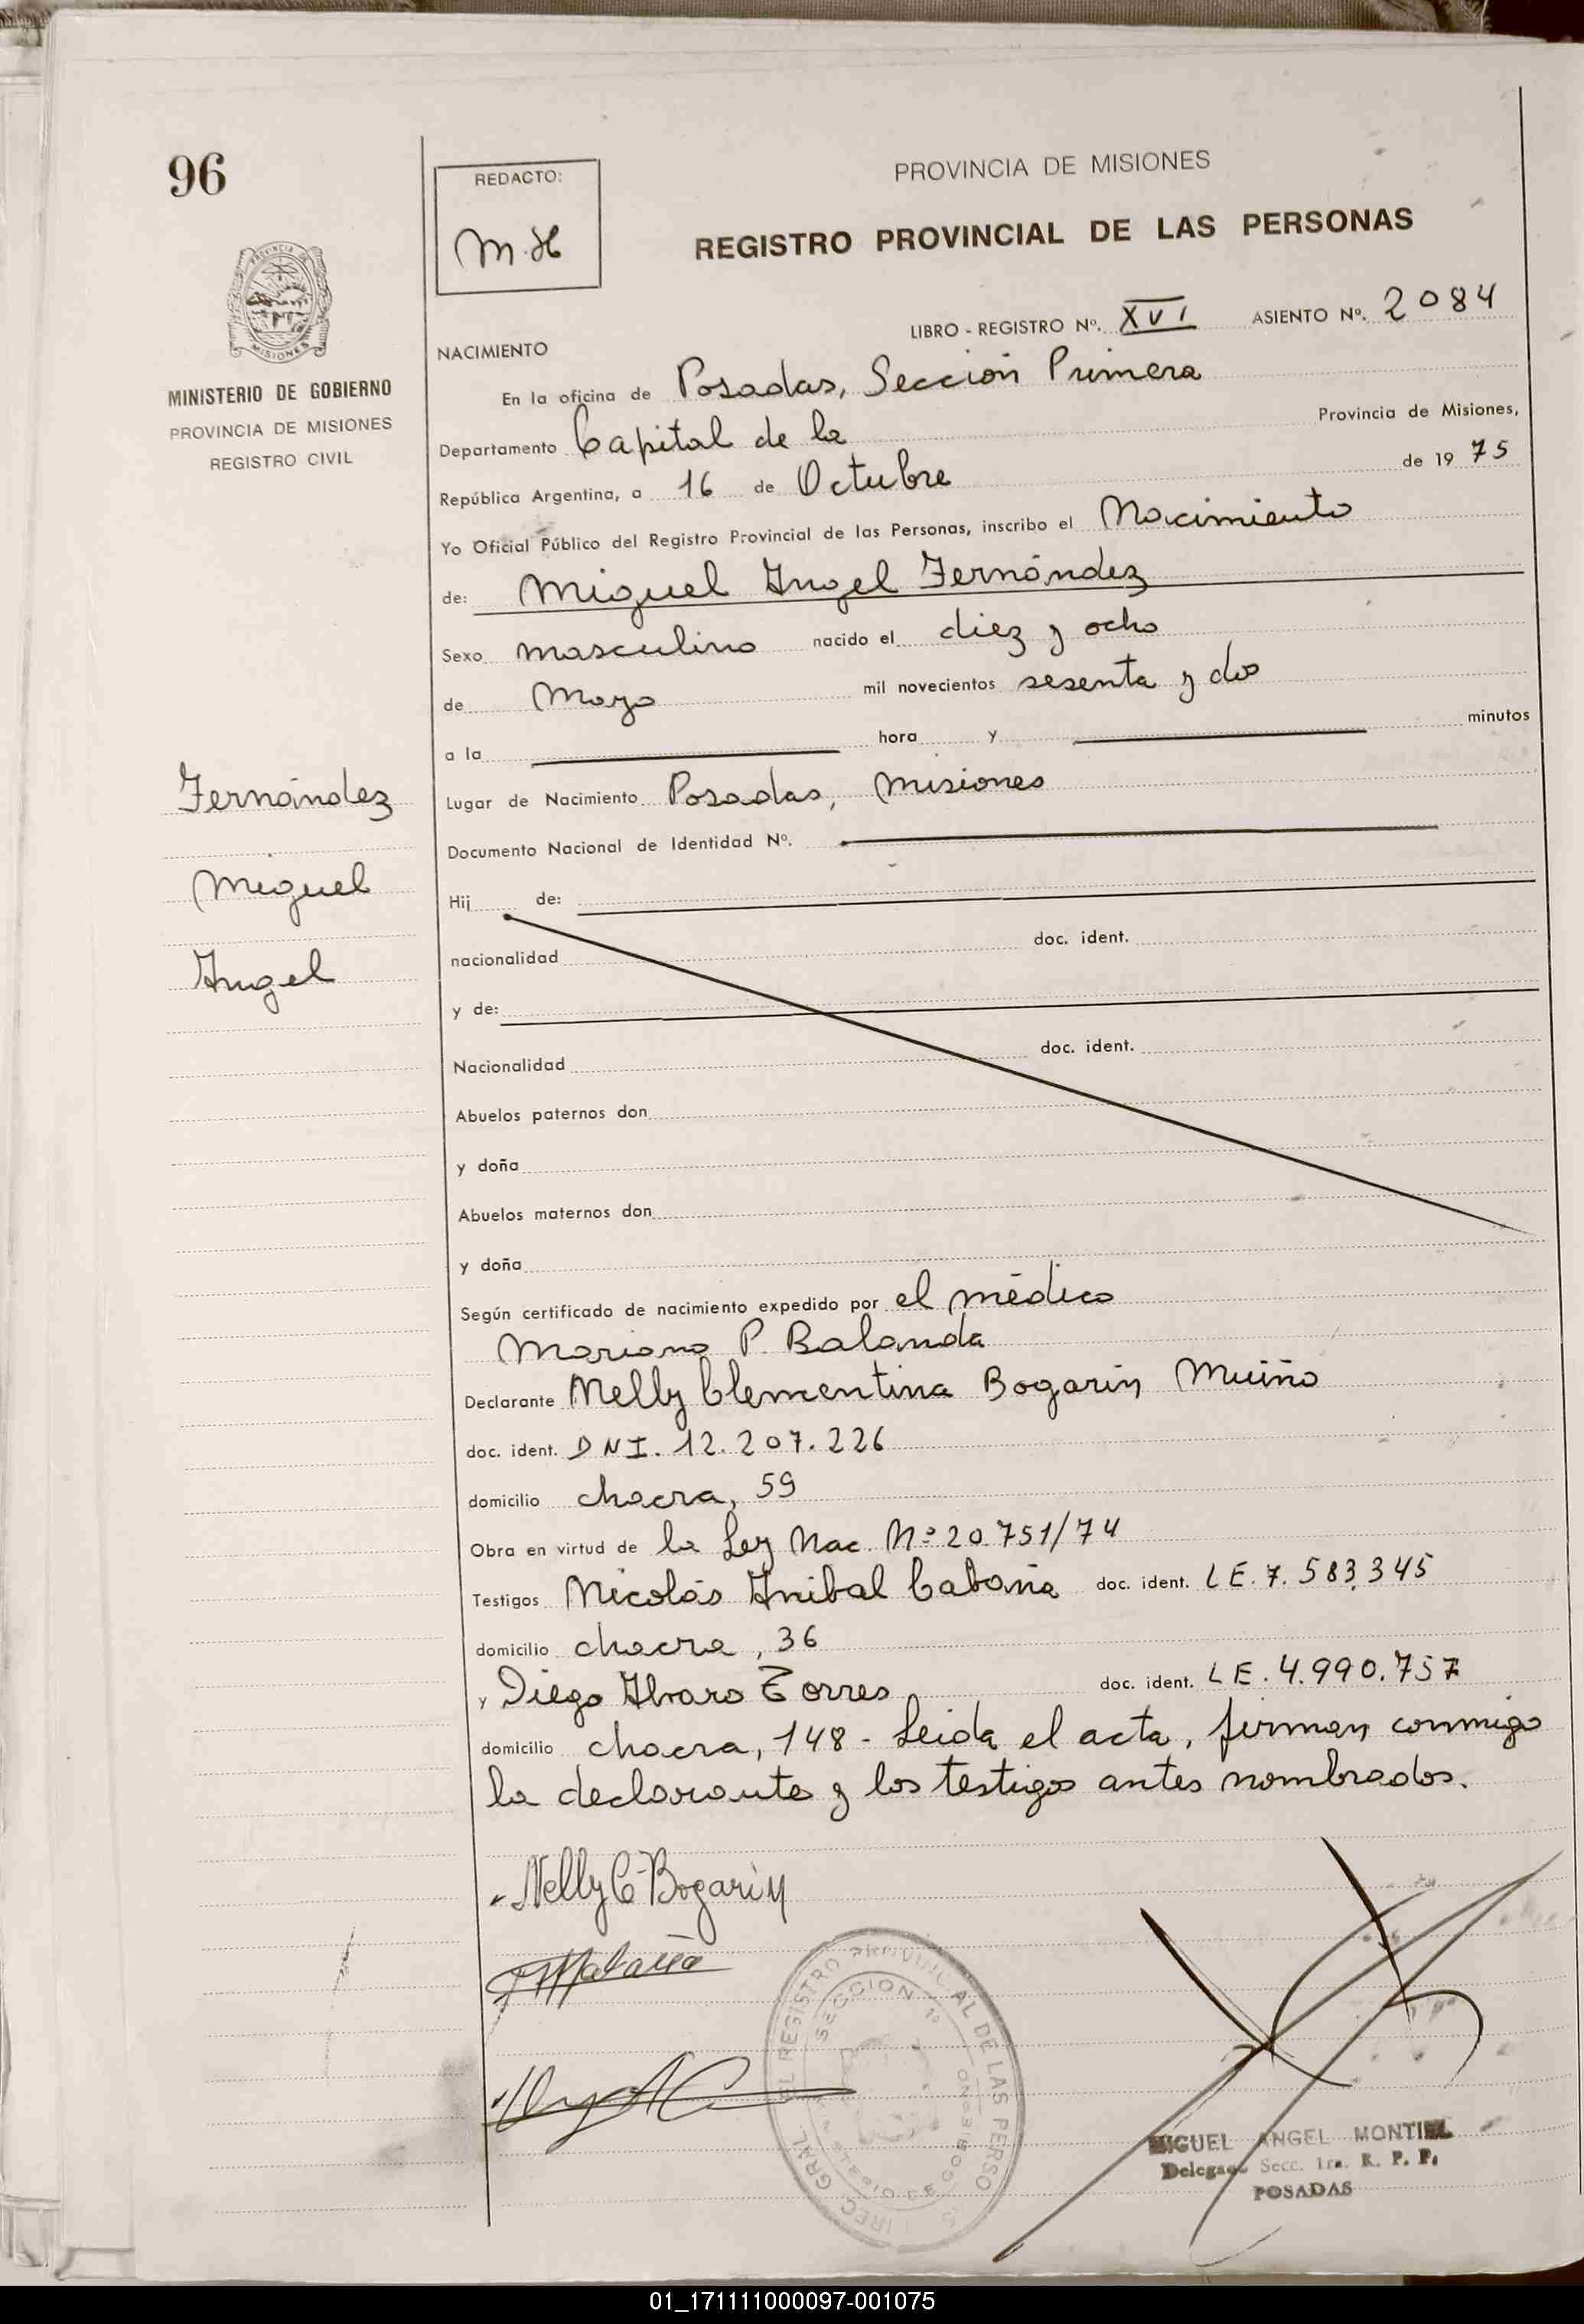 96
REDACTO:
M.H
PROVINCIA DE MISIONES
REGISTRO PROVINCIAL DE LAS PERSONAS
LIBRO - REGISTRO Nº. XVI ASIENTO Nº. 2084
MINISTERIO DE GOBIERNO
PROVINCIA DE MISIONES
REGISTRO CIVIL
NACIMIENTO
En la oficina de Posadas, Sección Primera
Departamento Capital de la Provincia de Misiones,
República Argentina, a 16 de Octubre de 1975
Yo Oficial Público del Registro Provincial de las Personas, inscribo el Nacimiento
de: Miguel Angel Fernández
Sexo masculino nacido el diez y ocho
de Mayo mil novecientos sesenta y dos
a la hora y minutos
Fernández
Miguel
Angel
Lugar de Nacimiento Posadas, Misiones
Documento Nacional de Identidad Nº.
Hij de:
nacionalidad doc. ident.
y de:
Nacionalidad doc. ident.
Abuelos paternos don
y doña
Abuelos maternos don
y doña
Según certificado de nacimiento expedido por el médico
Mariano P. Balanda
Declarante Nelly Clementina Bogarin Muiño
doc. ident. DNI. 12.207.226
domicilio chacra, 59
Obra en virtud de la Ley Nac. Nº 20.751/74
Testigos Nicolás Anibal Cabaña doc. ident. LE. 7.583.345
domicilio chacra, 36
y Diego Alvaro Torres doc. ident. LE. 4.990.757
domicilio chacra, 148 - Leida el acta, firman conmigo
la declarante y los testigos antes nombrados.
Nelly C Bogarin
SECCION 1º
MIGUEL ANGEL MONTIEL
Delegado Secc. 1ra. R. P. P.
POSADAS
01_171111000097-001075